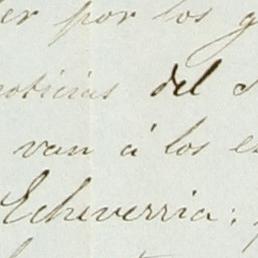 er por los g
noticias del s
van á los es
Echeverria;